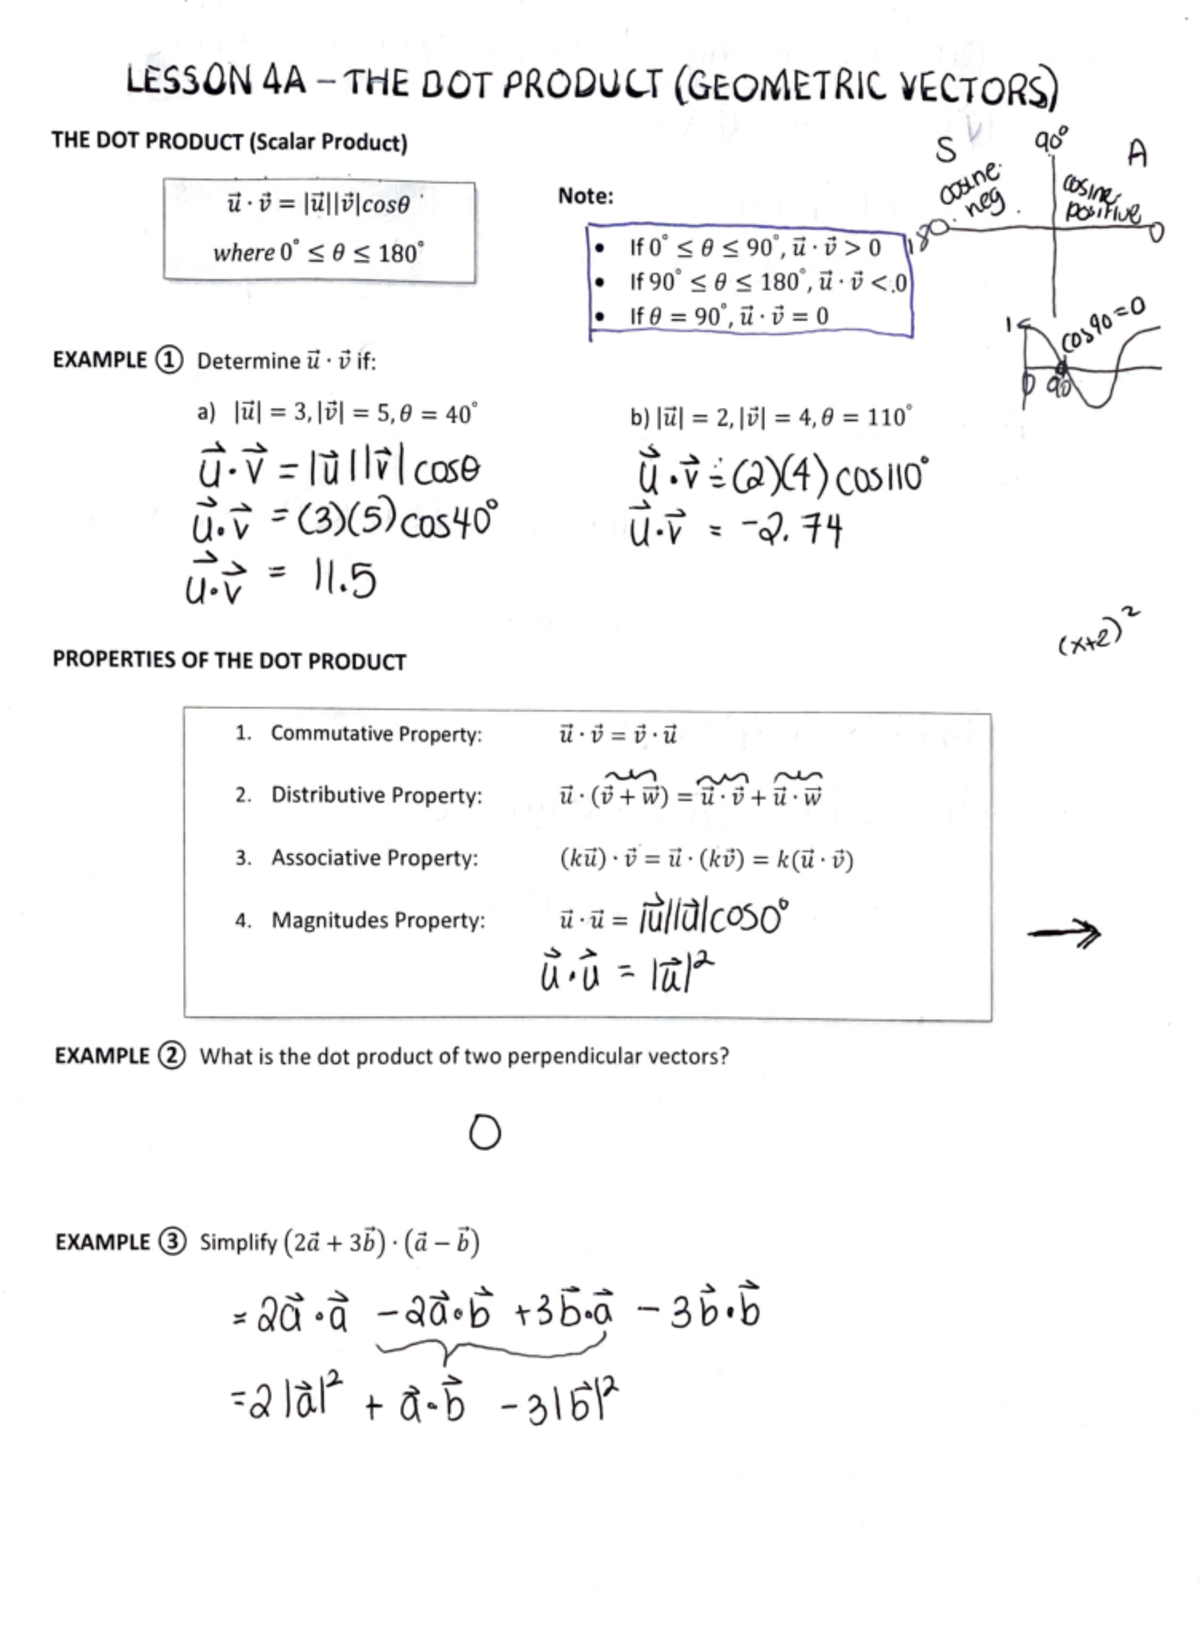 LESSON 4A – THE DOT PRODUCT (GEOMETRIC VECTORS)
THE DOT PRODUCT (Scalar Product)
u⃗ · v⃗ = |u⃗||v⃗|cosθ
where 0° ≤ θ ≤ 180°
Note:
• If 0° ≤ θ ≤ 90°, u⃗ · v⃗ > 0
• If 90° ≤ θ ≤ 180°, u⃗ · v⃗ < 0
• If θ = 90°, u⃗ · v⃗ = 0
S 90° A
cosine neg.
cosine positive
180 0
1 cos90=0
0 90
EXAMPLE ① Determine u⃗ · v⃗ if:
a) |u⃗| = 3, |v⃗| = 5, θ = 40°
u⃗·v⃗ = |u⃗||v⃗|cosθ
u⃗·v⃗ = (3)(5)cos40°
u⃗·v⃗ = 11.5
b) |u⃗| = 2, |v⃗| = 4, θ = 110°
u⃗·v⃗ = (2)(4)cos110°
u⃗·v⃗ = -2.74
(x+2)²
PROPERTIES OF THE DOT PRODUCT
1. Commutative Property: u⃗ · v⃗ = v⃗ · u⃗
2. Distributive Property: u⃗ · (v⃗ + w⃗) = u⃗ · v⃗ + u⃗ · w⃗
3. Associative Property: (ku⃗) · v⃗ = u⃗ · (kv⃗) = k(u⃗ · v⃗)
4. Magnitudes Property: u⃗ · u⃗ = |u⃗||u⃗|cos0°
u⃗·u⃗ = |u⃗|²
EXAMPLE ② What is the dot product of two perpendicular vectors?
0
EXAMPLE ③ Simplify (2a⃗ + 3b⃗) · (a⃗ – b⃗)
= 2a⃗·a⃗ - 2a⃗·b⃗ + 3b⃗·a⃗ - 3b⃗·b⃗
= 2|a⃗|² + a⃗·b⃗ - 3|b⃗|²